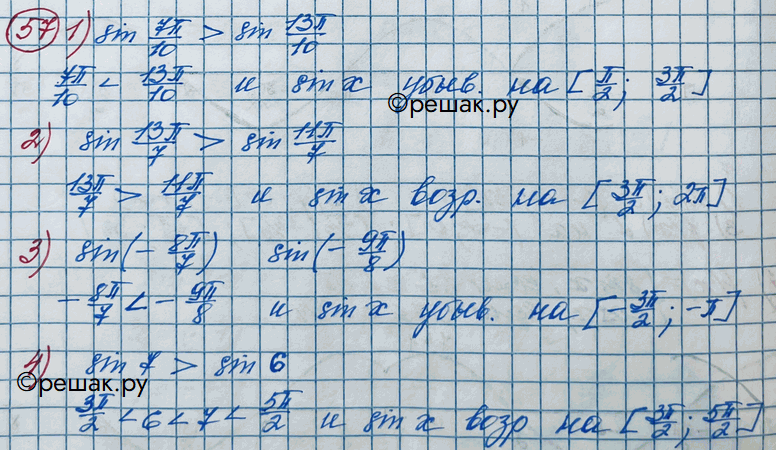 57 1) sin 7π/10 > sin 13π/10
7π/10 < 13π/10 и sin x убыв. на [π/2; 3π/2]
©решак.ру
2) sin 13π/7 > sin 11π/7
13π/7 > 11π/7 и sin x возр. на [3π/2; 2π]
3) sin(- 8π/7) sin(- 9π/8)
- 8π/7 < - 9π/8 и sin x убыв. на [-3π/2; -π]
4) sin 7 > sin 6
©решак.ру
3π/2 < 6 < 7 < 5π/2 и sin x возр на [3π/2; 5π/2]